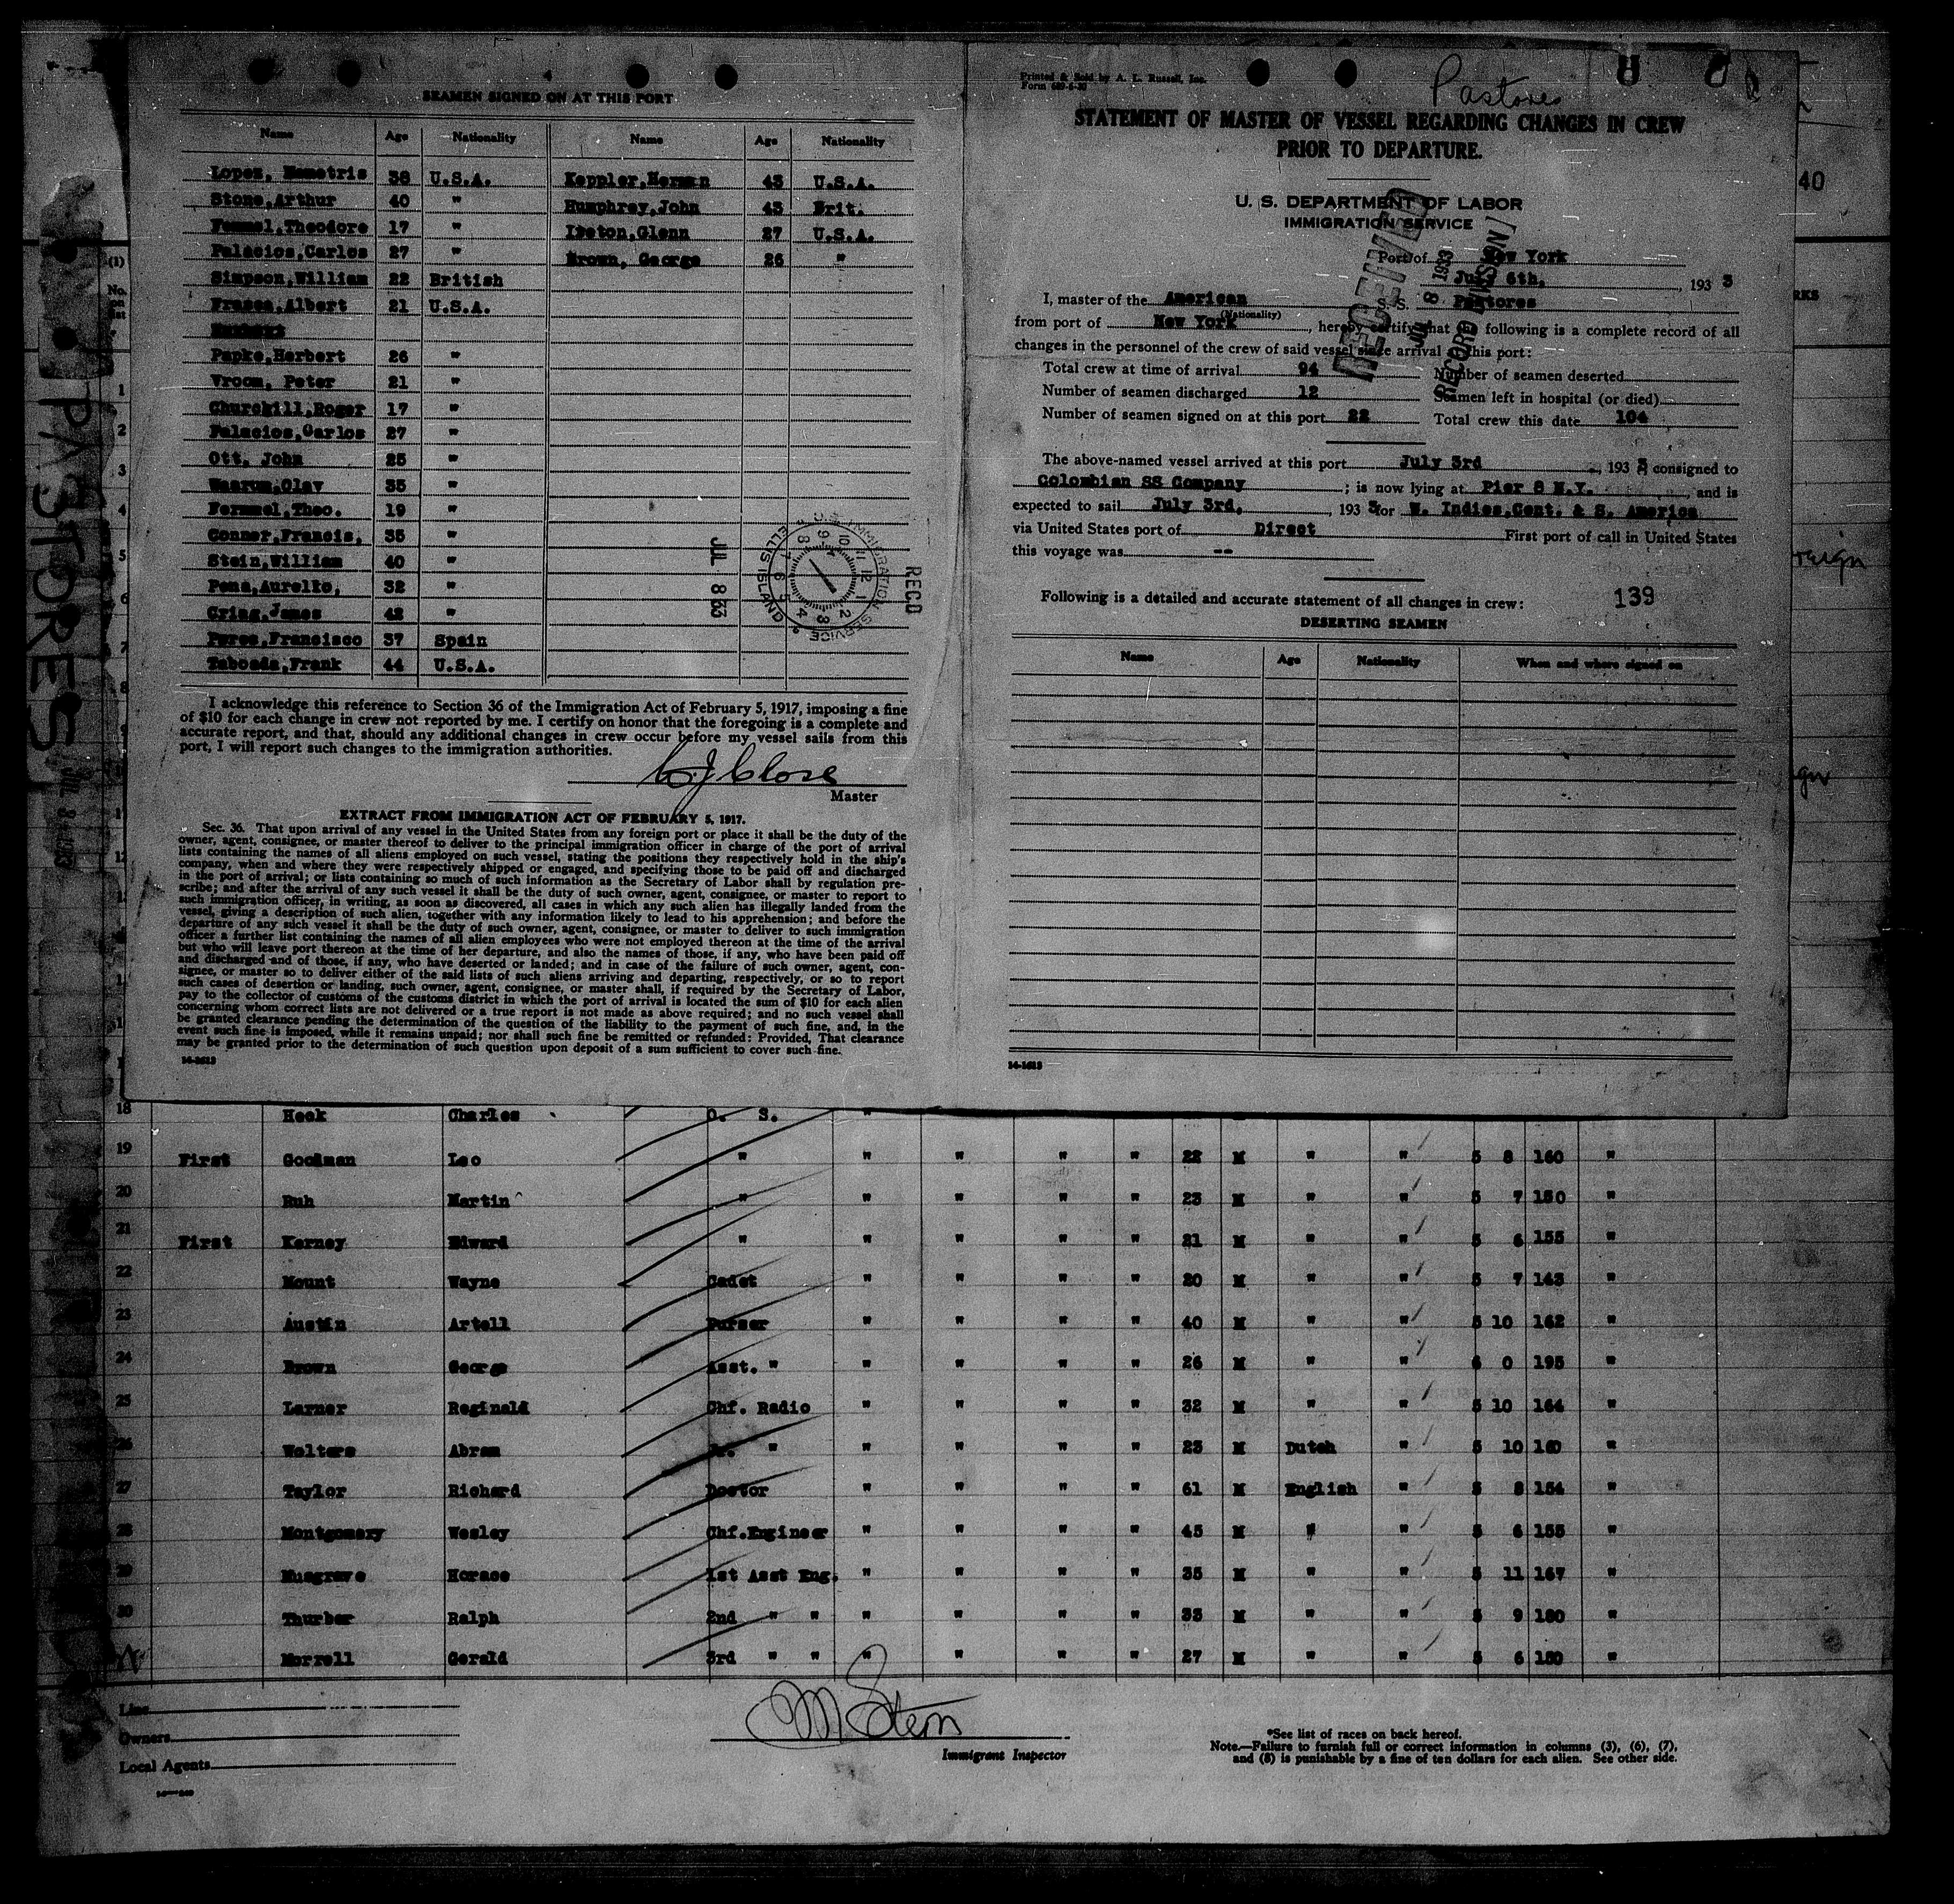 4
SEAMEN SIGNED ON AT THIS PORT
Name Age Nationality Name Age Nationality
Lopez, Demetris 38 U.S.A. Keppler,Herman 43 U.S.A.
Stone,Arthur 40 " Humphrey,John 43 Brit.
Theodore 17 " Glenn 27 U.S.A.
Palacios,Carlos 27 " Brown, George 26 "
Simpson,William 22 British
Albert 21 U.S.A.
Papke,Herbert 26 "
Vroom, Peter 21 "
Churchill,Roger 17 "
Palacios,Carlos 27 "
Ott, John 25 "
Olav 35 "
Theo. 19 "
Conner,Francis, 35 "
Stein,William 40 "
Pena,Aurelio, 32 "
James 42 "
Perez,Francisco 37 Spain
Taboada,Frank 44 U.S.A.
I acknowledge this reference to Section 36 of the Immigration Act of February 5, 1917, imposing a fine
of $10 for each change in crew not reported by me. I certify on honor that the foregoing is a complete and
accurate report, and that, should any additional changes in crew occur before my vessel sails from this
port, I will report such changes to the immigration authorities.
Close
Master
EXTRACT FROM IMMIGRATION ACT OF FEBRUARY 5, 1917.
Sec. 36. That upon arrival of any vessel in the United States from any foreign port or place it shall be the duty of the
owner, agent, consignee, or master thereof to deliver to the principal immigration officer in charge of the port of arrival
lists containing the names of all aliens employed on such vessel, stating the positions they respectively hold in the ship's
company, when and where they were respectively shipped or engaged, and specifying those to be paid off and discharged
in the port of arrival; or lists containing so much of such information as the Secretary of Labor shall by regulation pre-
scribe; and after the arrival of any such vessel it shall be the duty of such owner, agent, consignee, or master to report to
such immigration officer, in writing, as soon as discovered, all cases in which any such alien has illegally landed from the
vessel, giving a description of such alien, together with any information likely to lead to his apprehension; and before the
departure of any such vessel it shall be the duty of such owner, agent, consignee, or master to deliver to such immigration
officer a further list containing the names of all alien employees who were not employed thereon at the time of the arrival
but who will leave port thereon at the time of her departure, and also the names of those, if any, who have been paid off
and discharged and of those, if any, who have deserted or landed; and in case of the failure of such owner, agent, con-
signee, or master so to deliver either of the said lists of such aliens arriving and departing, respectively, or so to report
such cases of desertion or landing, such owner, agent, consignee, or master shall, if required by the Secretary of Labor,
pay to the collector of customs of the customs district in which the port of arrival is located the sum of $10 for each alien
concerning whom correct lists are not delivered or a true report is not made as above required; and no such vessel shall
be granted clearance pending the determination of the question of the liability to the payment of such fine, and, in the
event such fine is imposed, while it remains unpaid; nor shall such fine be remitted or refunded: Provided, That clearance
may be granted prior to the determination of such question upon deposit of a sum sufficient to cover such fine.
14-1613
U.S. IMMIGRATION SERVICE ELLIS ISLAND
RECD
JUL 8 33
Printed & Sold by A. L. Russell, Inc.
Pastores
STATEMENT OF MASTER OF VESSEL REGARDING CHANGES IN CREW
PRIOR TO DEPARTURE.
U. S. DEPARTMENT OF LABOR
IMMIGRATION SERVICE
RECEIVED
JUL 8 1933
RECORD DIVISION
Port of New York
July 6th, , 193 3
I, master of the American S. S. Pastores
(Nationality)
from port of New York , hereby certify that the following is a complete record of all
changes in the personnel of the crew of said vessel since arrival at this port:
Total crew at time of arrival 94 Number of seamen deserted
Number of seamen discharged 12 Seamen left in hospital (or died)
Number of seamen signed on at this port 22 Total crew this date 104
The above-named vessel arrived at this port July 3rd , 193 3 consigned to
Colombian SS Company ; is now lying at Pier 8 N.Y. , and is
expected to sail July 3rd, , 193 3 for W. Indies,Cent. & S. America
via United States port of Direct First port of call in United States
this voyage was --
Following is a detailed and accurate statement of all changes in crew: 139
DESERTING SEAMEN
Name Age Nationality When and where signed on
14-1613
PASTORES
40
18 Heck Charles O. S. "
19 First Goodman Leo " " " " " 22 M " " 5 8 160 "
20 Ruh Martin " " " " " 23 M " " 5 7 150 "
21 First Kerney Edward " " " " " 21 M " " 5 6 155 "
22 Mount Wayne Cadet " " " " 20 M " " 5 7 143 "
23 Austin Artell Purser " " " " 40 M " " 5 10 162 "
24 Brown George Asst. " " " " " 26 M " " 6 0 195 "
25 Larner Reginald Chf. Radio " " " " 32 M " " 5 10 164 "
26 Wolters Abram " " " " " 23 M Dutch " 5 10 160 "
27 Taylor Richard Doctor " " " " 61 M English " 5 8 154 "
28 Montgomery Wesley Chf.Engineer " " " " 45 M " " 5 6 155 "
29 Musgrave Horace 1st Asst Eng. " " " " 35 M " " 5 11 167 "
30 Thurber Ralph 2nd " " " " " " 33 M " " 5 9 180 "
Morrell Gerald 3rd " " " " " " 27 M " " 5 6 150 "
Line
Owners
Local Agents
M Stern
Immigrant Inspector
*See list of races on back hereof.
Note.—Failure to furnish full or correct information in columns (3), (6), (7),
and (8) is punishable by a fine of ten dollars for each alien. See other side.